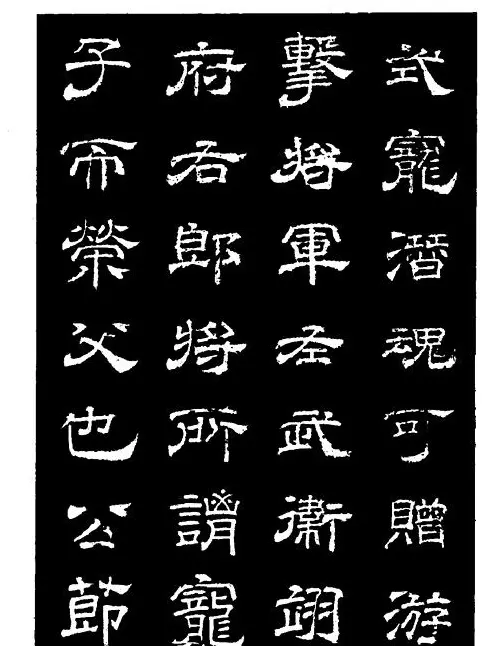 式寵潛魂可贈游
擊將軍左武衛翊
府右郎將所謂寵
子而榮父也公節